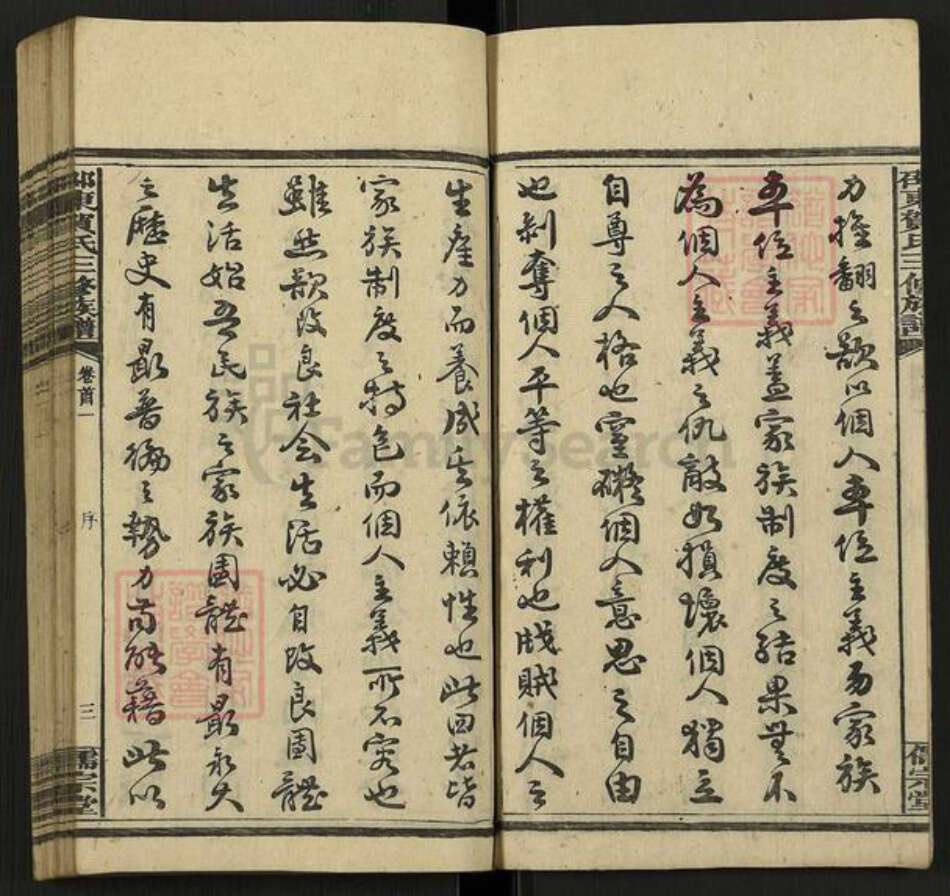 力推翻之欲以個人單位主義易家族
單位主義蓋家族制度之結果無不
為個人主義之仇敵如損壞個人獨立
自尊之人格也窒礙個人意思之自由
也剝奪個人平等之權利也戕賊個人之
生產力而養成其依賴性也此四者皆
家族制度之特色而個人主義所不容也
雖然欲改良社会生活必自改良團體
生活始吾民族之家族團體有最永久
之歷史有最普徧之勢力苟能藉此以
邵東賀氏三修族譜
卷首一
序
三
儒宗堂
邵東賀氏三修族譜
儒宗堂
FamilySearch